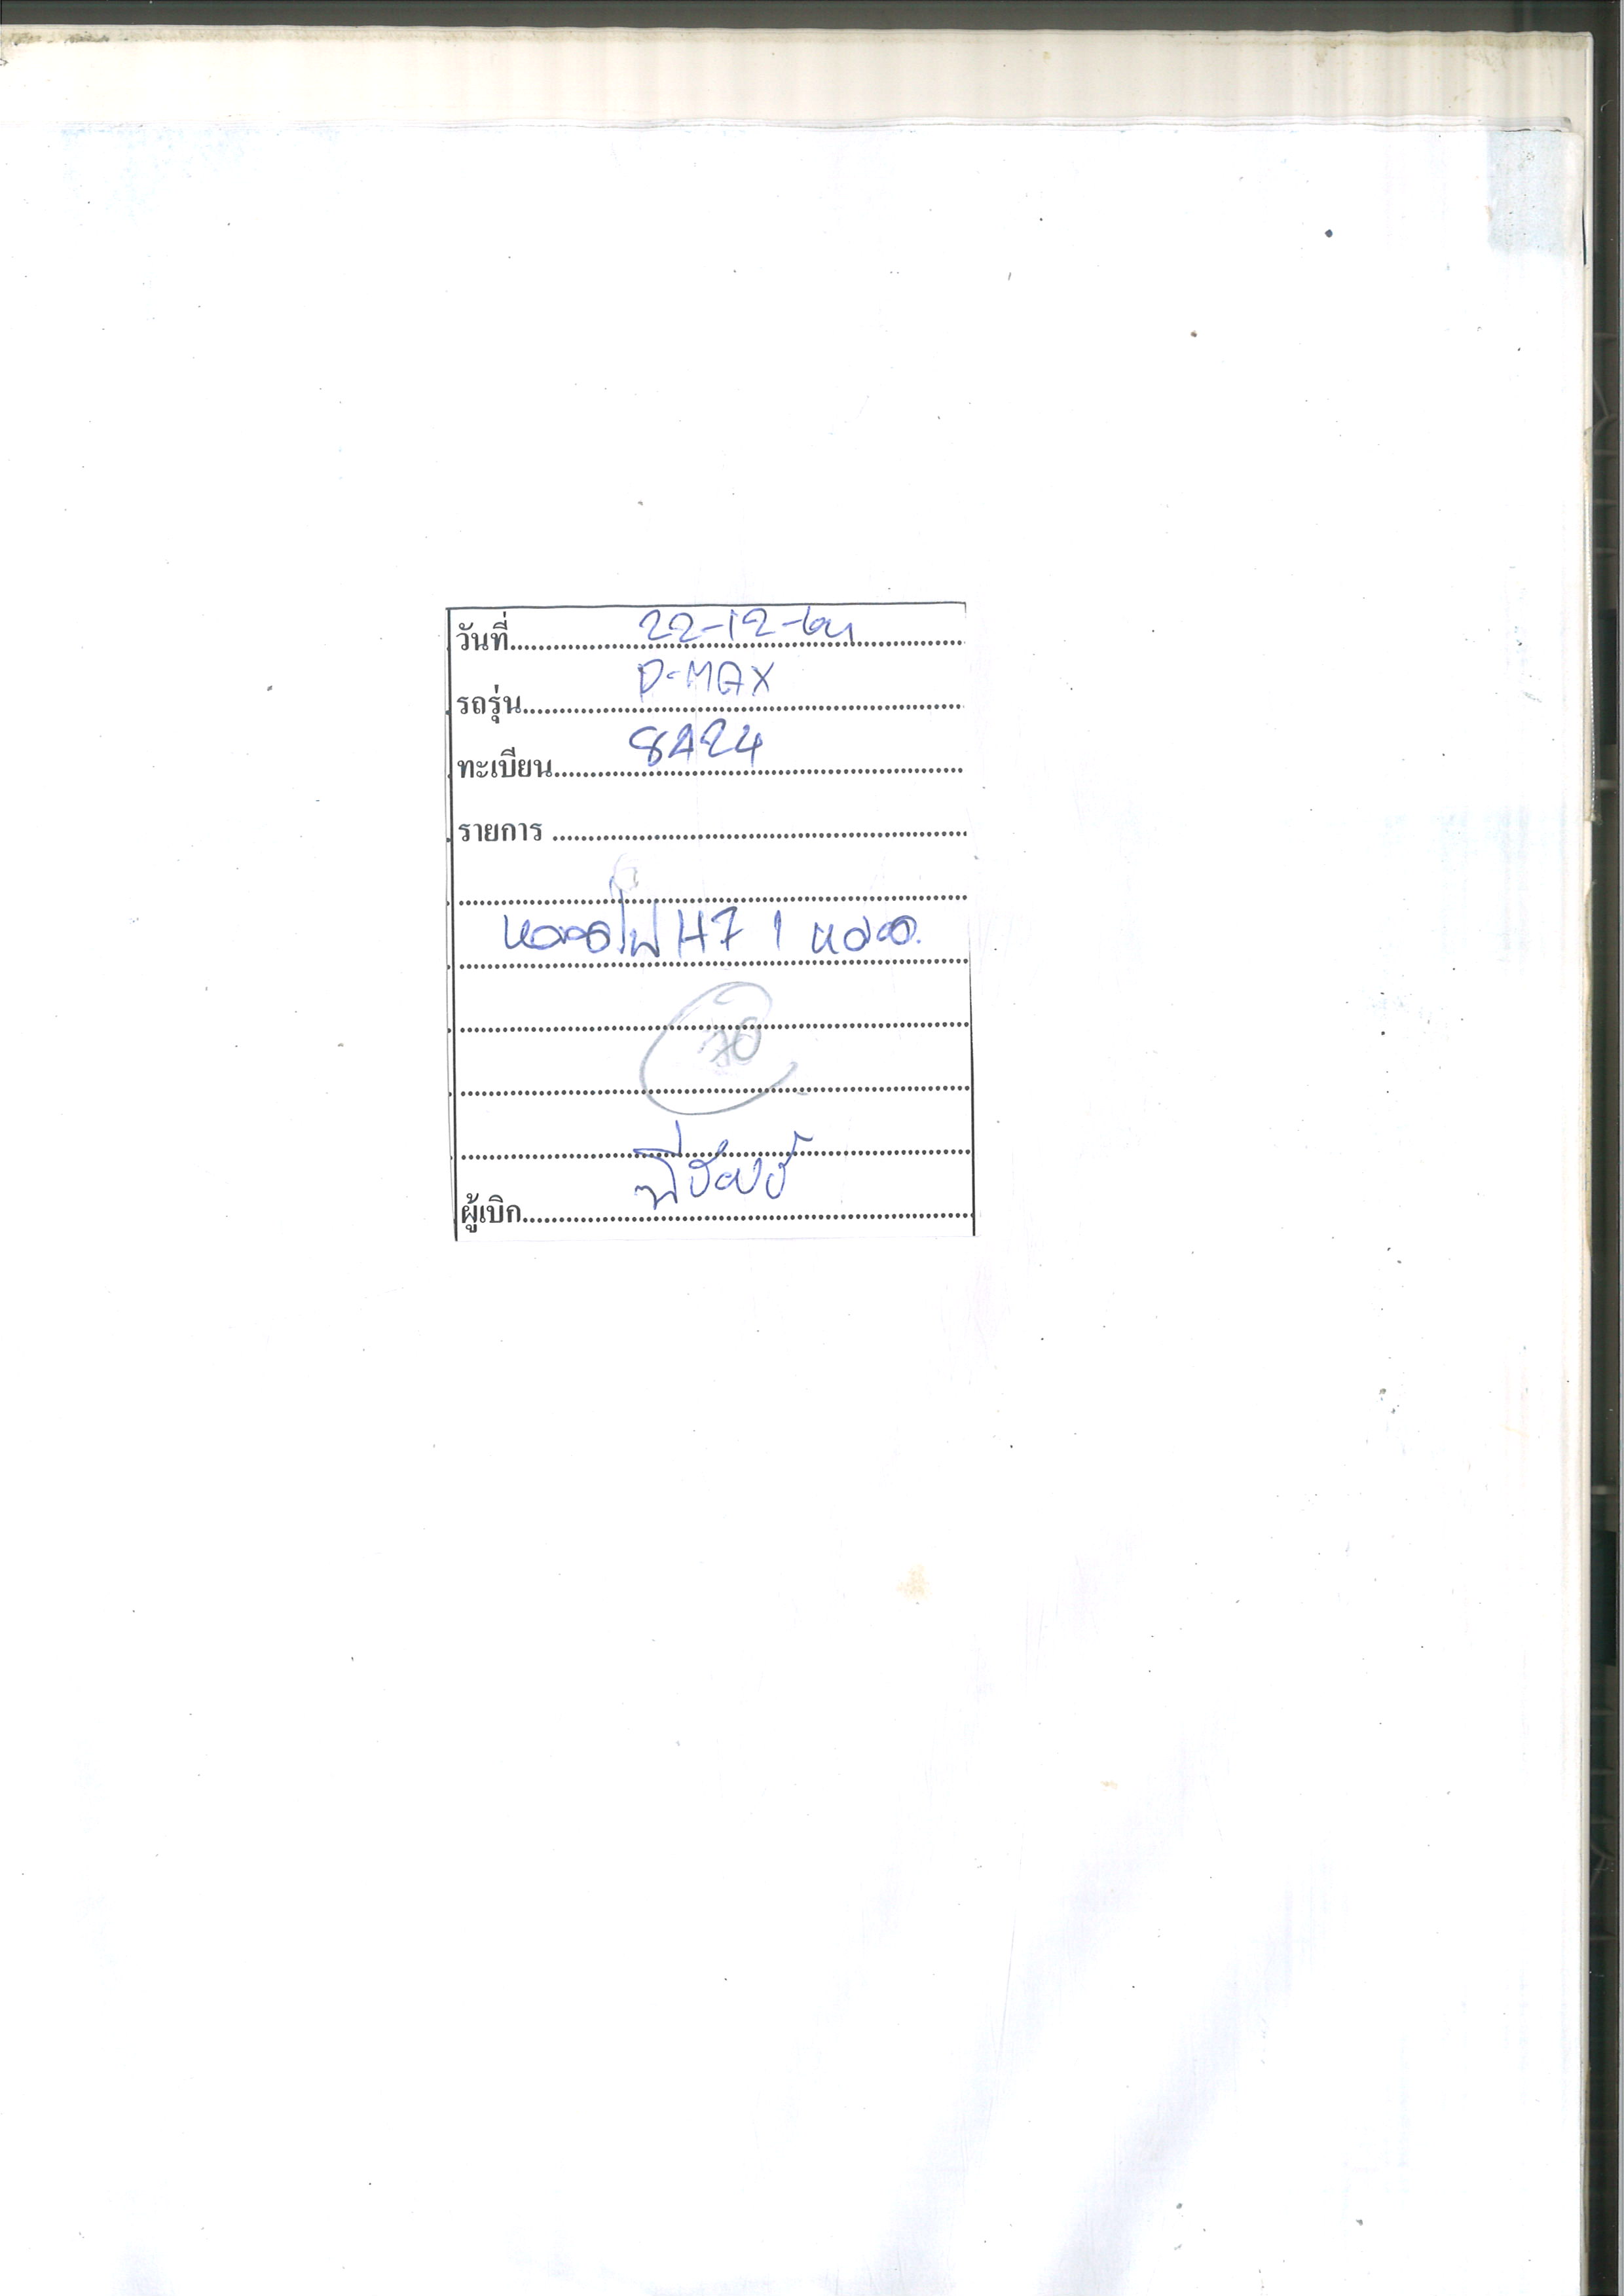 วันที่ 22-12-64
รถรุ่น D-MAX
ทะเบียน 8424
รายการ
หลอดไฟ H7 1 หลอด
70
ผู้เบิก